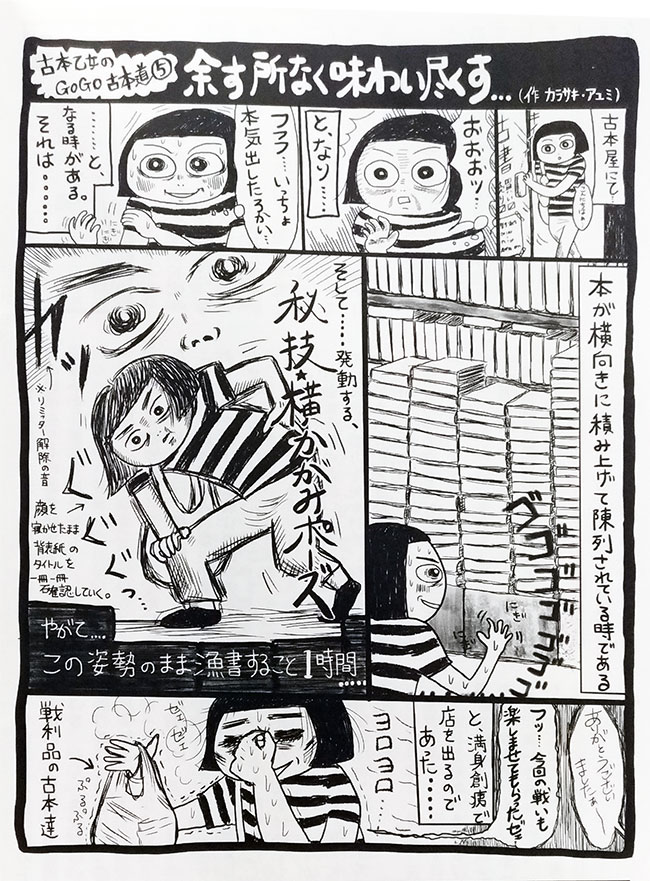 古本乙女の
GOGO古本道⑤
余す所なく味わい尽くす…
(作 カラサキ・アユミ)
古本屋にて…
古書
おおおッ…
と、なり……
フフフ…いっちょ
本気出したろかい…
………と、
なる時がある。
それは……
本が横向きに積み上げて陳列されている時である
ゴゴゴゴゴゴ
にぎ
にぎ
そして……発動する、
秘技★横かがみポーズ
※リミッター解除の音
顔を
寝かせたまま
背表紙の
タイトルを
一冊一冊
確認していく。
ぐぐぐっ…
やがて….
この姿勢のまま漁書すること1時間……
ありがとうござい
ましたぁー
フッ…今回の戦いも
楽しませてもらったゼ…
と、満身創痍で
店を出るので
あった……
ヨロヨロ
ゼェ
ゼェ
ぷるぷる
戦利品の古本達